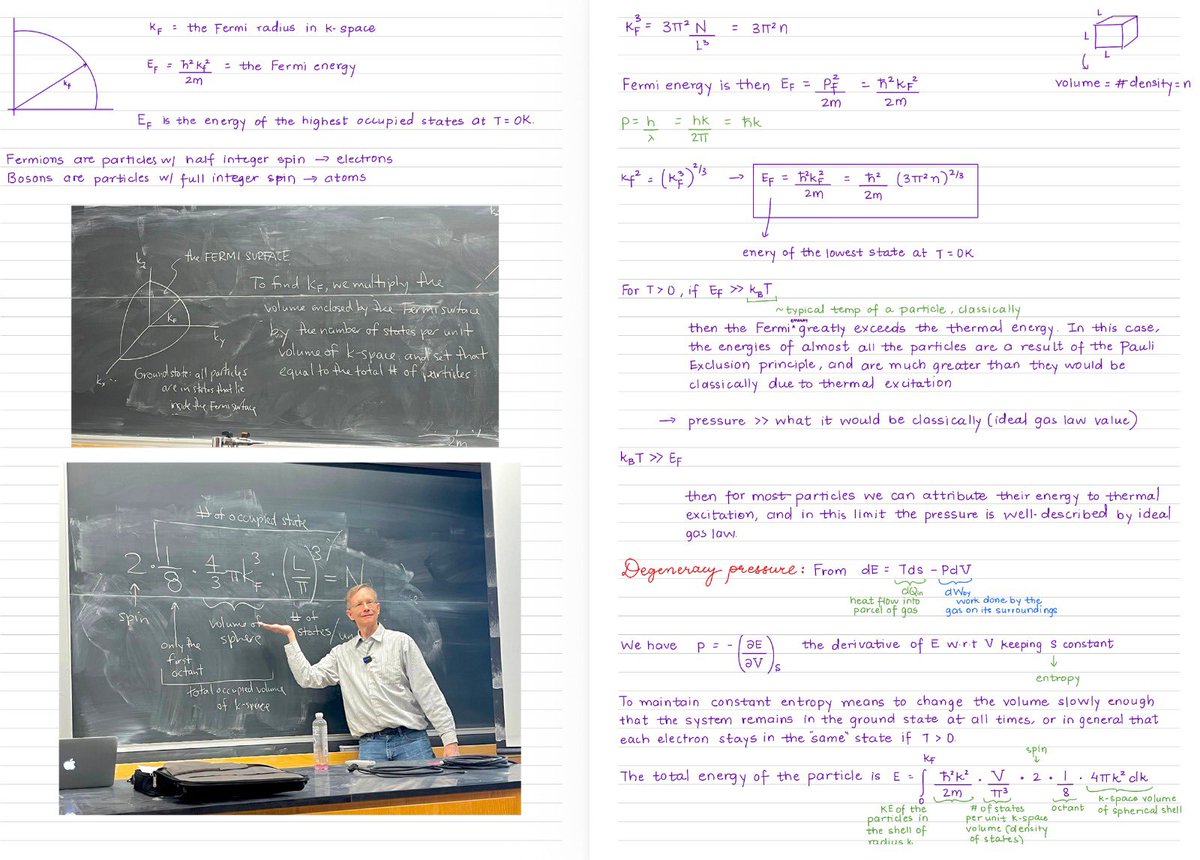 k_F = the Fermi radius in k-space
E_F = ħ²k_f²/2m = the Fermi energy
k_f
E_F is the energy of the highest occupied states at T = 0K.
Fermions are particles w/ half integer spin → electrons
Bosons are particles w/ full integer spin → atoms
the FERMI SURFACE
k_z
k_F
k_y
To find k_F, we multiply the
volume enclosed by the Fermi surface
by the number of states per unit
volume of k-space, and set that
equal to the total # of particles
Ground state: all particles
are in states that lie
inside the Fermi surface
2m
# of occupied state
2 · 1/8 · 4/3 πk_F³ · (L/π)³ = N
spin
only the
first
octant
volume of
sphere
# of
states/
total occupied volume
of k-space
k_F³ = 3π² N/L³ = 3π²n
L
L
L
volume = # density = n
Fermi energy is then E_F = P_F²/2m = ħ²k_F²/2m
p = h/λ = hk/2π = ħk
k_f² = (k_F³)^2/3 → E_F = ħ²k_F²/2m = ħ²/2m (3π²n)^2/3
enery of the lowest state at T = 0K
For T > 0, if E_F >> k_BT
~ typical temp of a particle, classically
then the Fermi energy greatly exceeds the thermal energy. In this case,
the energies of almost all the particles are a result of the Pauli
Exclusion principle, and are much greater than they would be
classically due to thermal excitation
→ pressure >> what it would be classically (ideal gas law value)
k_BT >> E_F
then for most particles we can attribute their energy to thermal
excitation, and in this limit the pressure is well-described by ideal
gas law.
Degeneracy pressure: From dE = Tds - PdV
dQ_in
heat flow into
parcel of gas
dW_by
work done by the
gas on its surroundings
We have p = -(∂E/∂V)_s the derivative of E w.r.t V keeping S constant
entropy
To maintain constant entropy means to change the volume slowly enough
that the system remains in the ground state at all times, or in general that
each electron stays in the "same" state if T > 0.
spin
The total energy of the particle is E = ∫₀^k_f ħ²k²/2m · V/π³ · 2 · 1/8 · 4πk² dk
KE of the
particles in
the shell of
radius k
# of states
per unit k-space
volume (density
of states)
octant
k-space volume
of spherical shell